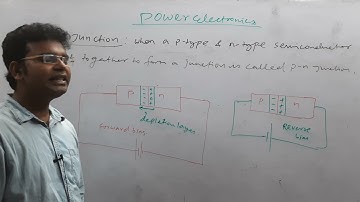 Power Electronics
Junction : when a P-type & n-type semiconductor
together to form a junction is called P-n junction
P n
P n
depletion layer
forward bias
Reverse
bias